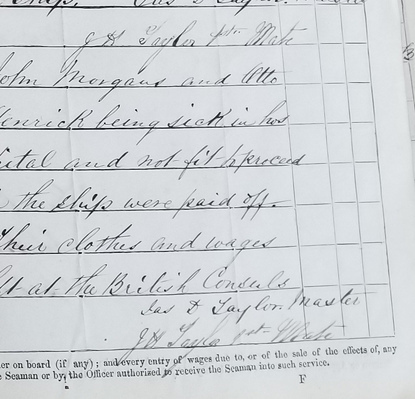 ship. Jas D Taylor Master
J H Taylor 1st Mate
John Morgans and Otto
Henrick being sick in hos
pital and not fit to proceed
the ship were paid off.
Their clothes and wages
left at the British Consuls
Jas D Taylor Master
J H Taylor 1st Mate
er on board (if any); and every entry of wages due to, or of the sale of the effects, of, any
e Seaman or by, the Officer authorized to receive the Seaman into such service.
F